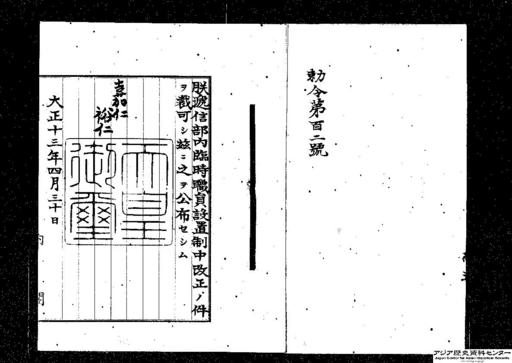 勅令第百二號
朕遞信部內臨時職員設置制中改正ノ件
ヲ裁可シ玆ニ之ヲ公布セシム
嘉仁
裕仁
天皇御璽
大正十三年四月三十日
內閣
アジア歴史資料センター
Japan Center for Asian Historical Records